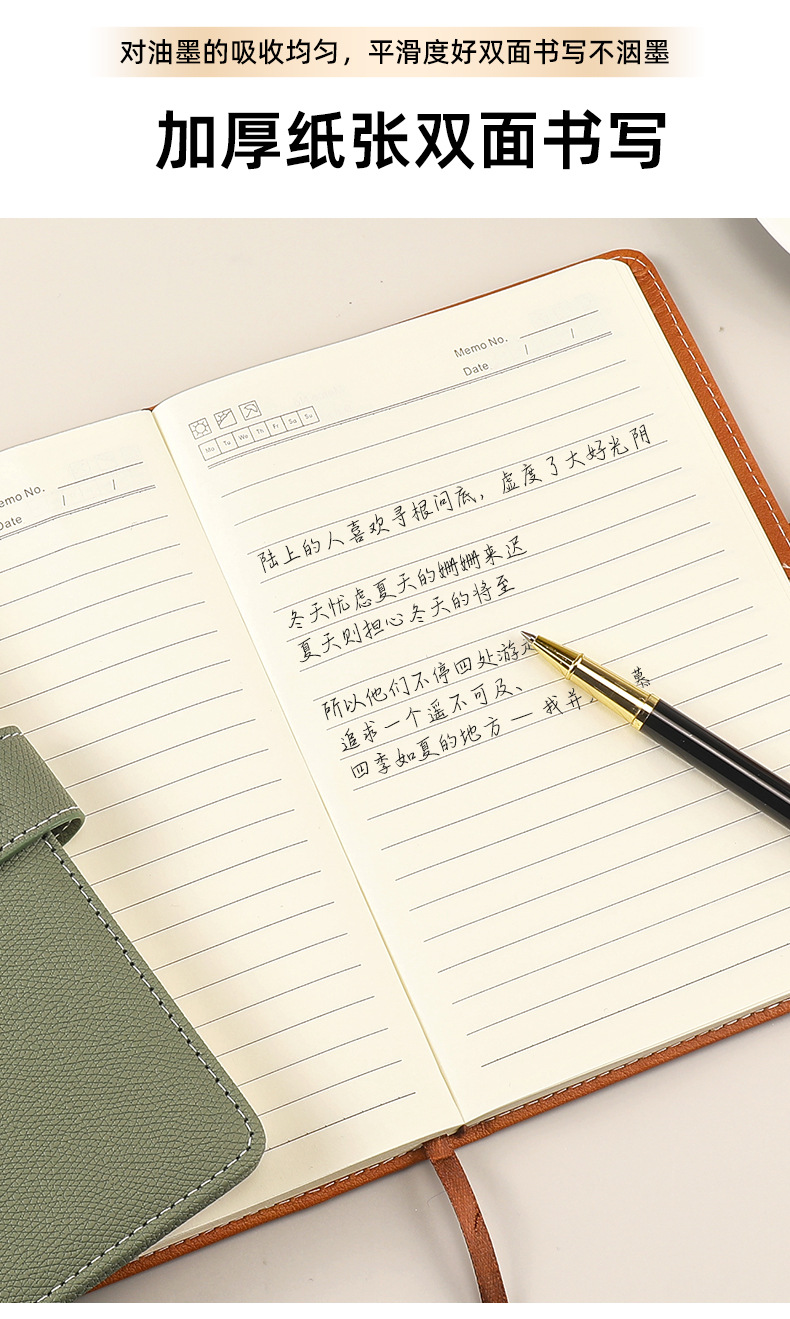 对油墨的吸收均匀，平滑度好双面书写不洇墨
加厚纸张双面书写
Memo No.
Date / /
Mo Tu We Th Fr Sa Su
emo No.
Date / /
陆上的人喜欢寻根问底，虚度了大好光阴
冬天忧虑夏天的姗姗来迟
夏天则担心冬天的将至
所以他们不停四处游走
追求一个遥不可及、
四季如夏的地方 — 我并 慕